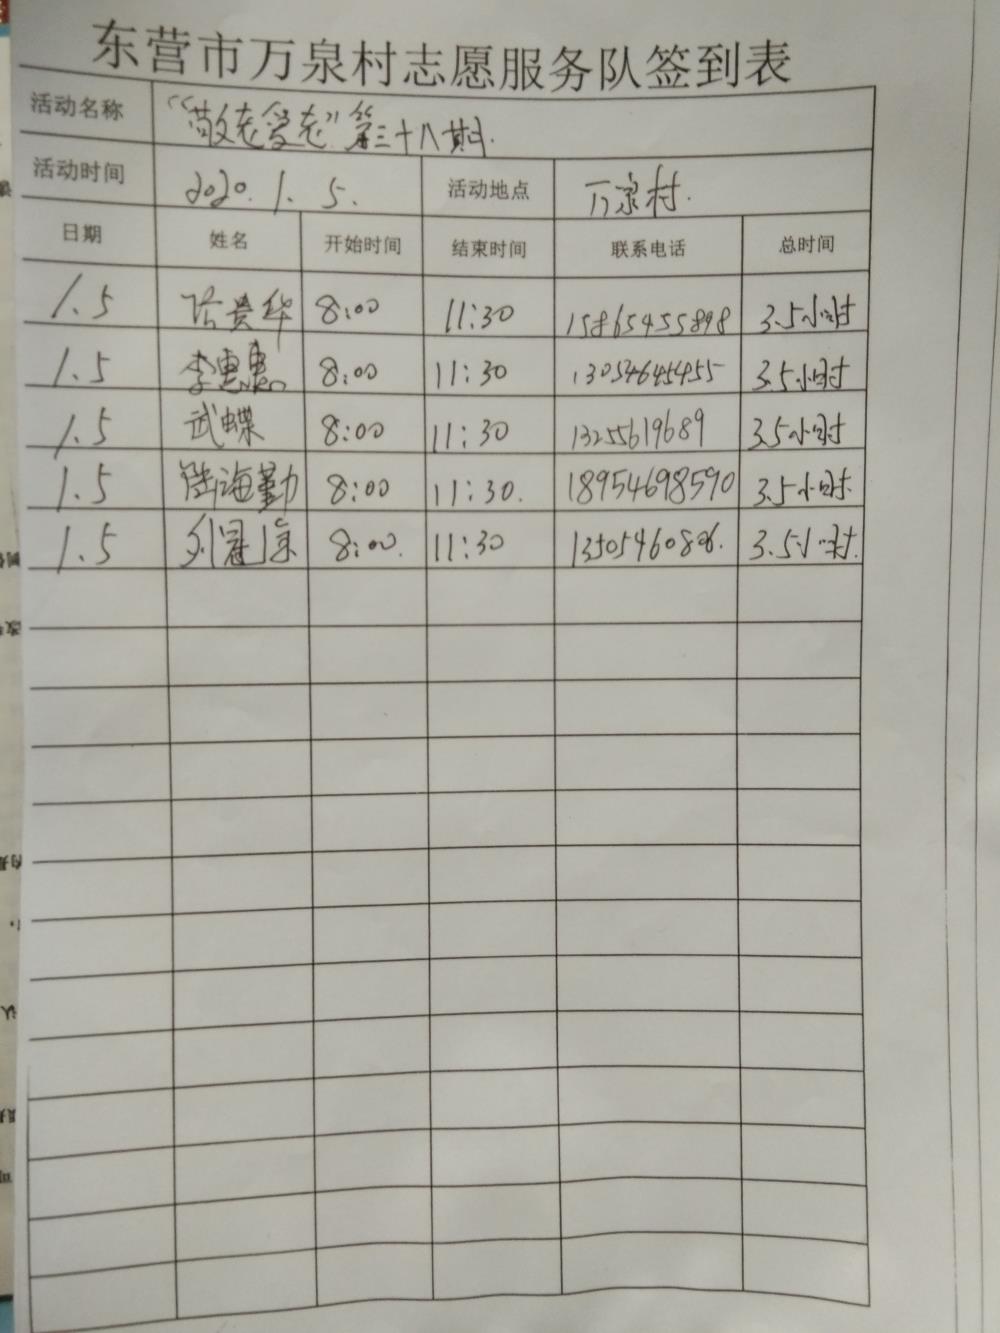 东营市万泉村志愿服务队签到表
活动名称 “敬老爱老”第三十八期.
活动时间 2020.1.5. 活动地点 万泉村.
日期 姓名 开始时间 结束时间 联系电话 总时间
1.5 贵华 8:00 11:30 15865455898 3.5小时
1.5 李惠惠 8:00 11:30 13054645455 3.5小时
1.5 武蝶 8:00 11:30 13255619689 3.5小时
1.5 陆海勤 8:00 11:30. 18954698590 3.5小时.
1.5 刘冠 8:00. 11:30 13505460806. 3.5小时.